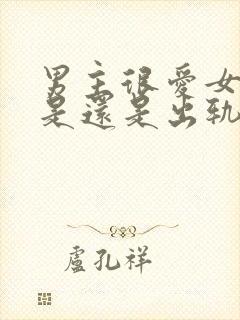 男主很爱女
是還是出轨
盧孔祥